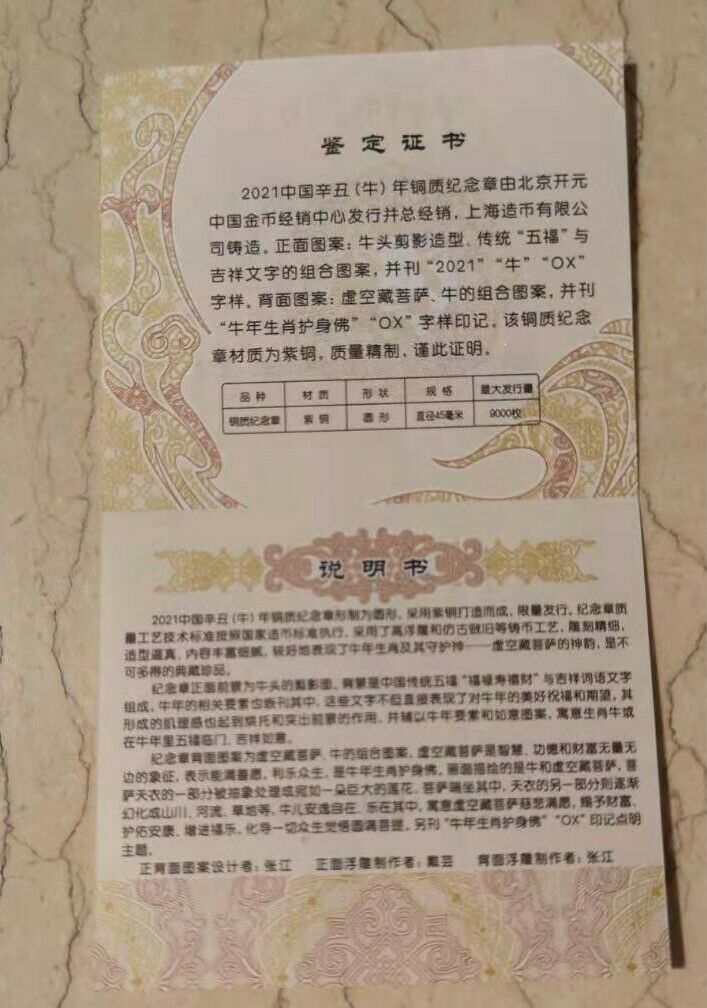 鉴定证书
2021中国辛丑(牛)年铜质纪念章由北京开元
中国金币经销中心发行并总经销，上海造币有限公
司铸造。正面图案：牛头剪影造型、传统“五福”与
吉祥文字的组合图案，并刊“2021”“牛”“OX”
字样。背面图案：虚空藏菩萨、牛的组合图案，并刊
“牛年生肖护身佛”“OX”字样印记，该铜质纪念
章材质为紫铜，质量精制，谨此证明。
品种 材质 形状 规格 最大发行量
铜质纪念章 紫铜 圆形 直径45毫米 9000枚
说明书
2021中国辛丑(牛)年铜质纪念章形制为圆形，采用紫铜打造而成，限量发行。纪念章质
量工艺技术标准按照国家造币标准执行，采用了高浮雕和仿古做旧等铸币工艺，雕刻精细，
造型逼真，内容丰富细腻，极好地表现了牛年生肖及其守护神——虚空藏菩萨的神韵，是不
可多得的典藏珍品。
纪念章正面前景为牛头的剪影图，背景是中国传统五福“福禄寿禧财”与吉祥词语文字
组成，牛年的相关要素也嵌刊其中，这些文字不但直接表现了对牛年的美好祝福和期望，其
形成的肌理感也起到烘托和突出前景的作用，并辅以牛年要素和如意图案，寓意生肖牛或
在牛年里五福临门、吉祥如意。
纪念章背面图案为虚空藏菩萨、牛的组合图案，虚空藏菩萨是智慧、功德和财富无量无
边的象征，表示能满善愿，利乐众生，是牛年生肖护身佛。画面描绘的是牛和虚空藏菩萨，菩
萨天衣的一部分被抽象处理成宛如一朵巨大的莲花，菩萨端坐其中，天衣的另一部分则逐渐
幻化成山川、河流、草地等，牛儿安逸自在、乐在其中，寓意虚空藏菩萨慈悲满愿，赐予财富，
护佑安康，增进福乐，化导一切众生觉悟圆满菩提。另刊“牛年生肖护身佛”“OX”印记点明
主题。
正背面图案设计者：张江 正面浮雕制作者：戴芸 背面浮雕制作者：张江